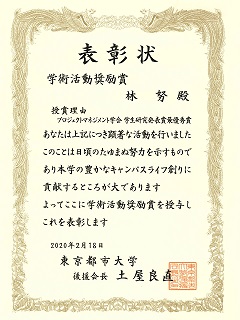 表彰状
学術活動奨励賞
林 努 殿
授賞理由
プロジェクトマネジメント学会 学生研究発表賞最優秀賞
あなたは上記につき顕著な活動を行いました
このことは日頃のたゆまぬ努力を示すもので
あり本学の豊かなキャンパスライフ創りに
貢献するところが大であります
よってここに学術活動奨励賞を授与し
これを表彰します
2020年2月18日
東京都市大学
後援会長 土屋良直